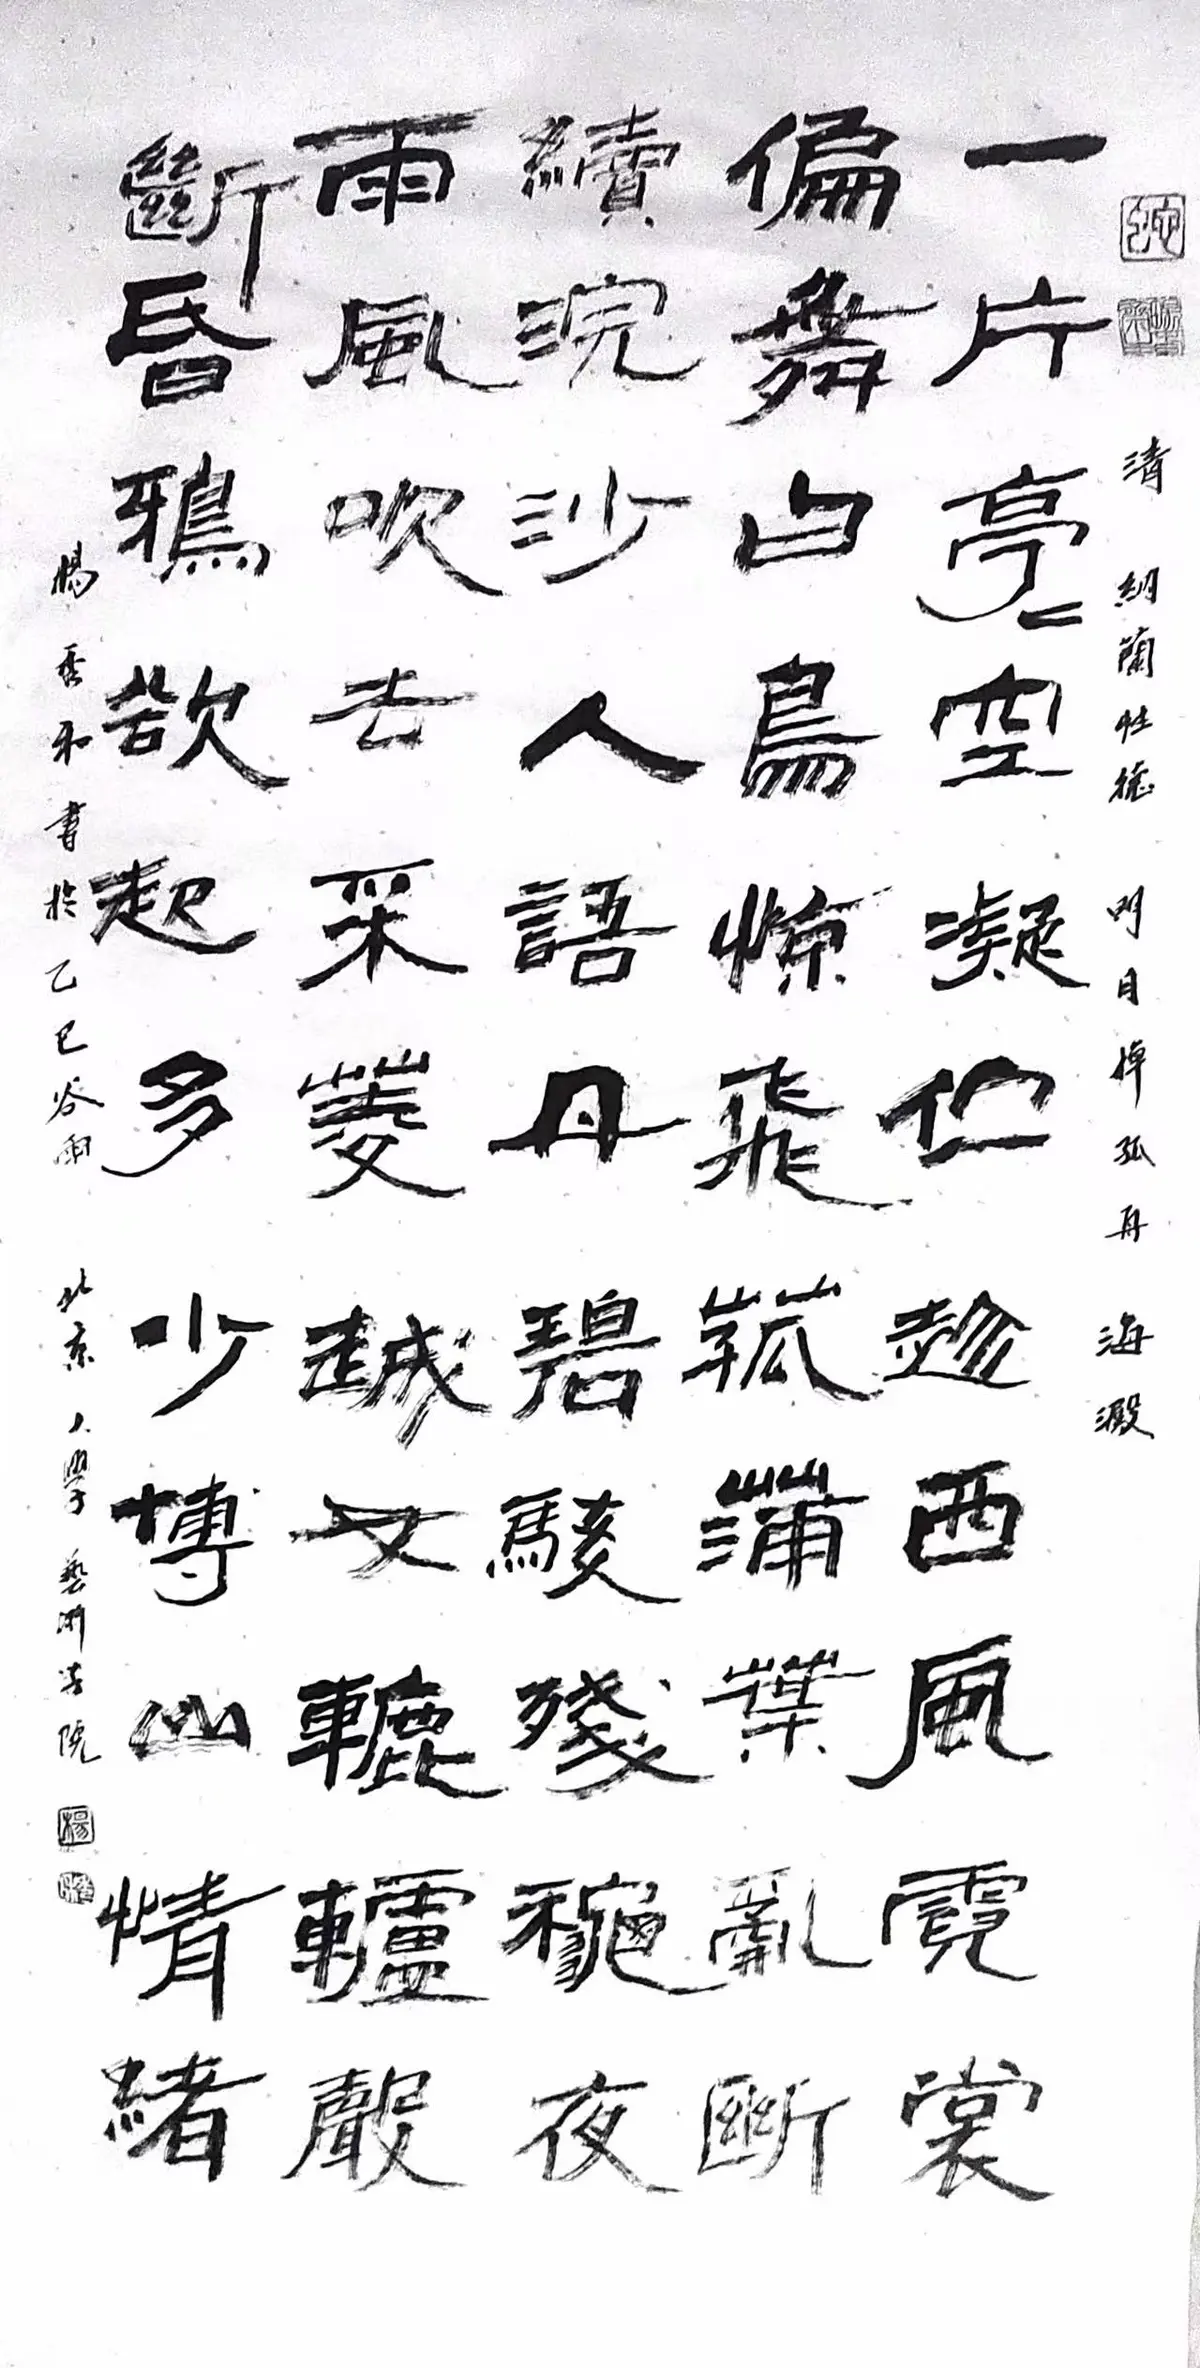 清 納蘭性德 明月棹孤舟 海澱
一片亭〻空凝伫趁西風霓裳
偏舞白鳥惊飛菰蒲葉亂斷
續浣沙人語丹碧駁殘龝夜
雨風吹去采菱越女轆轤聲
斷昏鴉欲起多少博山情緒
楊和書於乙巳谷雨 北京大學藝術院
楊